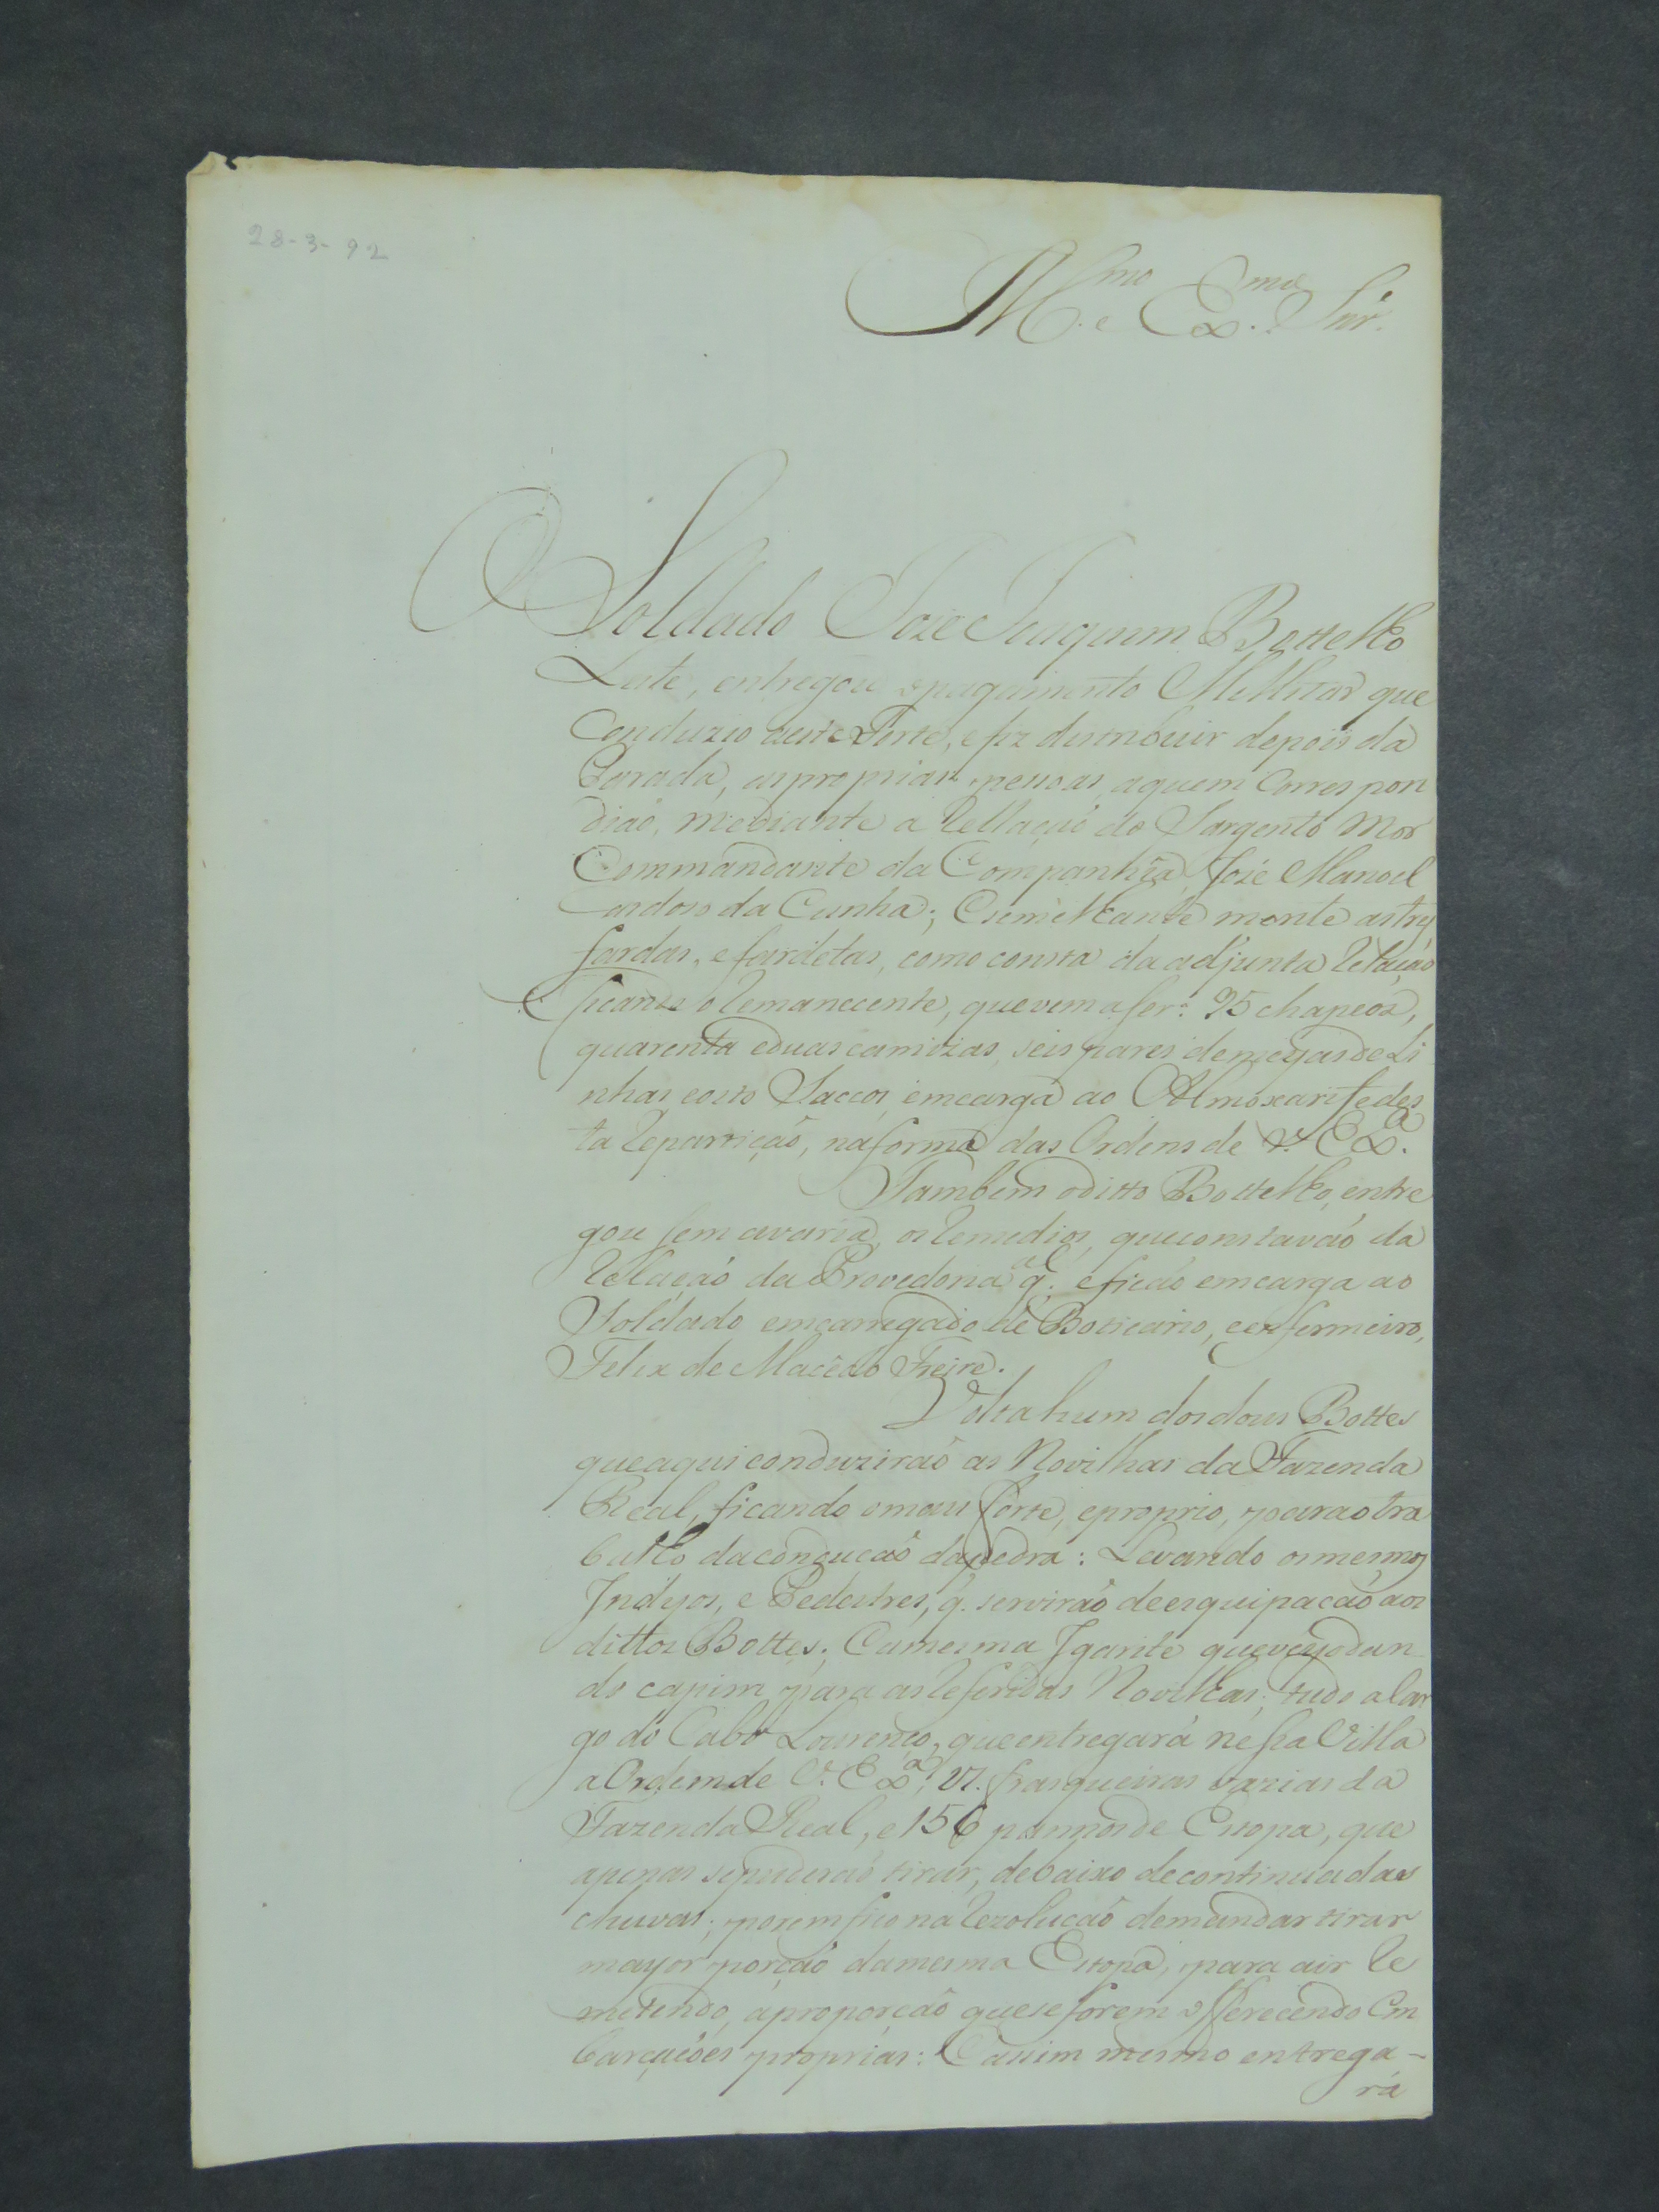 28-3-92
Ill.mo e Ex.mo Snr.
O Soldado Joze Joaquim Bottelho
Leite, entregou o pagamento Militar que
Conduzio aeste Forte, e fiz destribuir depois da
Parada, as proprias pessoas, aquem Correspon
dião, mediante a Rellação do Sargento Mor
Commandante da Companhia, Jozé Manoel
Cardozo da Cunha; E semelhante mente as tres
fardas, e fardetas, como consta da adjunta Relação
ficando o Remanecente, que vem a ser: 95 chapeos,
quarenta eduas camizas, seis pares de meyas de Li
nhas eoito Saccos, em carga ao Almoxarife des
ta Repartição, na forma das Ordens de V. Ex.a
Tambem oditto Bottelho, entre
gou sem avaria, os Remedios, que constavão da
Rellação da Provedoria g.al e ficão em carga ao
Soldado emcarregado de Boticario, e enfermeiro,
Felix de Macêdo Freire.
Volta hum dos dous Bottes
que aqui conduzirão as Novilhas da Fazenda
Real, ficando o mais forte, eproprio, para o tra
balho da conducaõ da pedra: Levando os mesmos
Indyos, e Pedestres, q. servirão de esquipacaõ aos
dittos Bottes; E a mesma Igarité que veyo dan
do capim para as Referidas Novilhas; tudo a car
go do Cabo Lourenço, que entregará nessa Villa
a Ordem de V. Ex.a, 21. frasqueiras vazias da
Fazenda Real, e 156 pannos de Estopa, que
apenas se puderaõ tirar, debaixo de continuadas
chuvas; porem fico na Rezolucaõ demandar tirar
mayor porcaõ da mesma Estopa, para a ir Re
metendo, á proporcaõ que se forem offerecendo Em
barcações proprias: E assim mesmo entrega-
rá